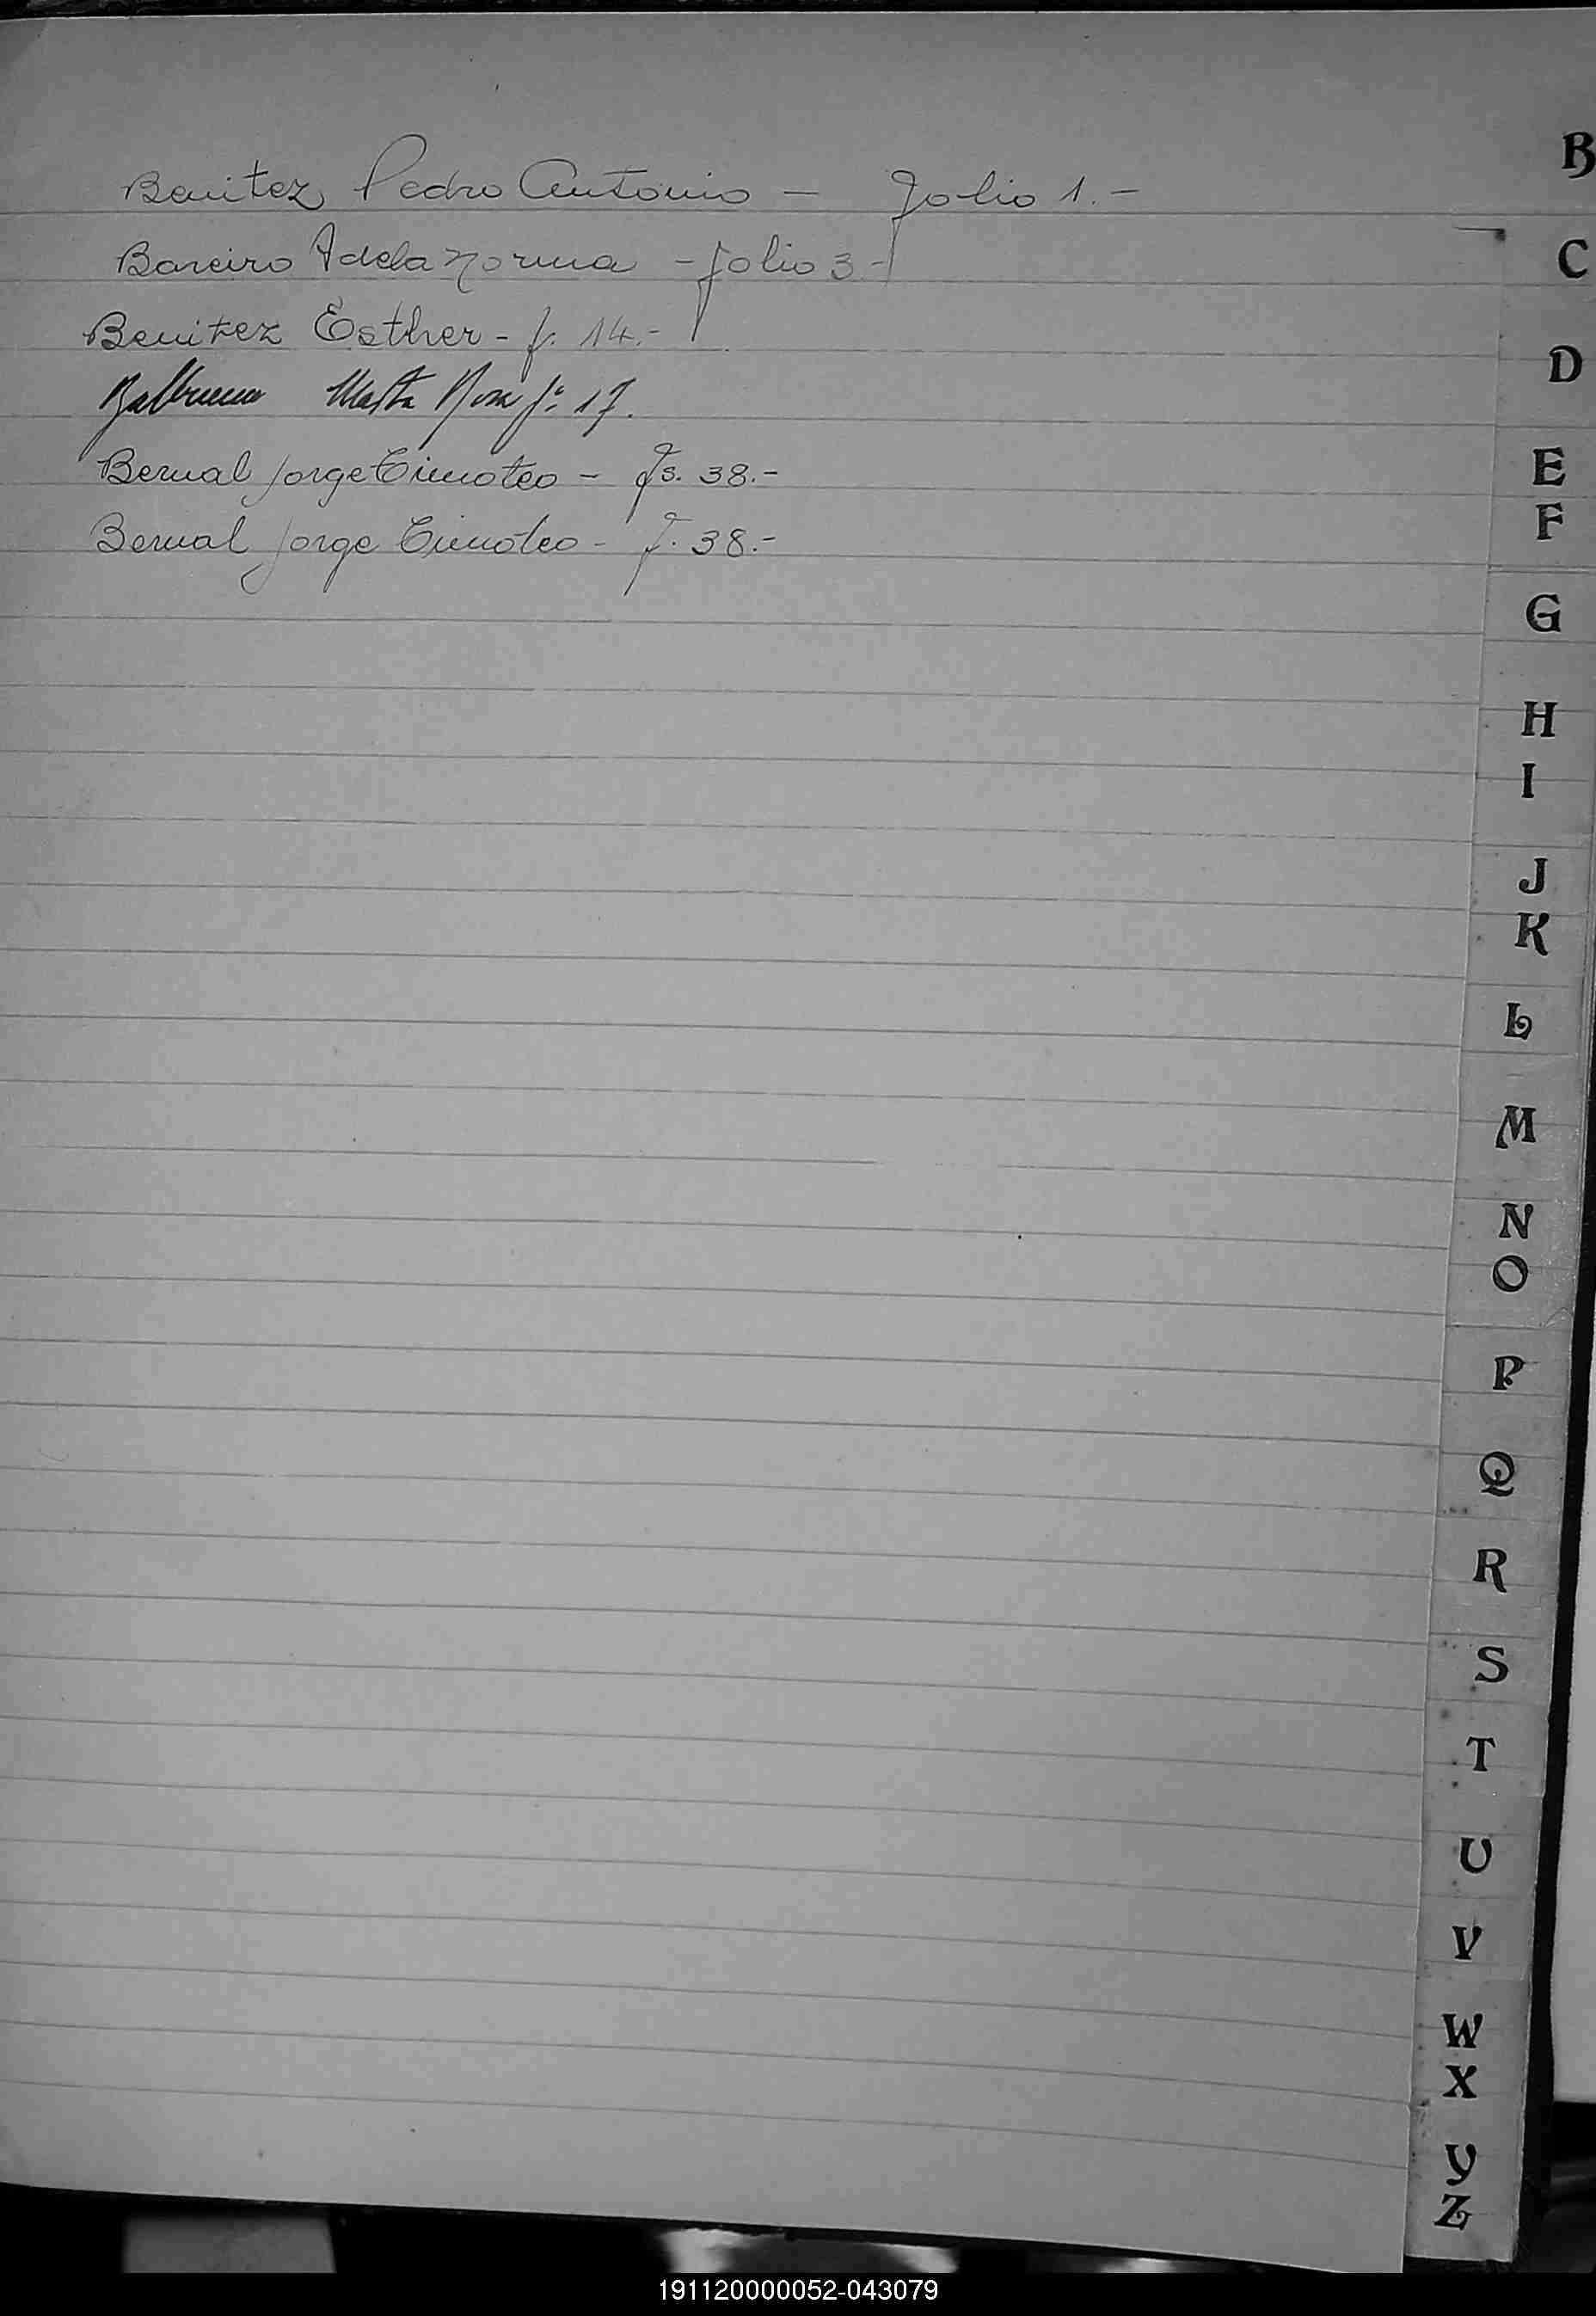 Benitez Pedro Antonio - Folio 1.-
Bareiro Adela Norma - folio 3-
Benitez Esther - f. 14.-
Marta Rosa fº 17.
Bernal Jorge Timoteo - Fs. 38.-
Bernal Jorge Timoteo - F. 38.-
B
C
D
E
F
G
H
I
J
K
L
M
N
O
P
Q
R
S
T
U
V
W
X
Y
Z
191120000052-043079